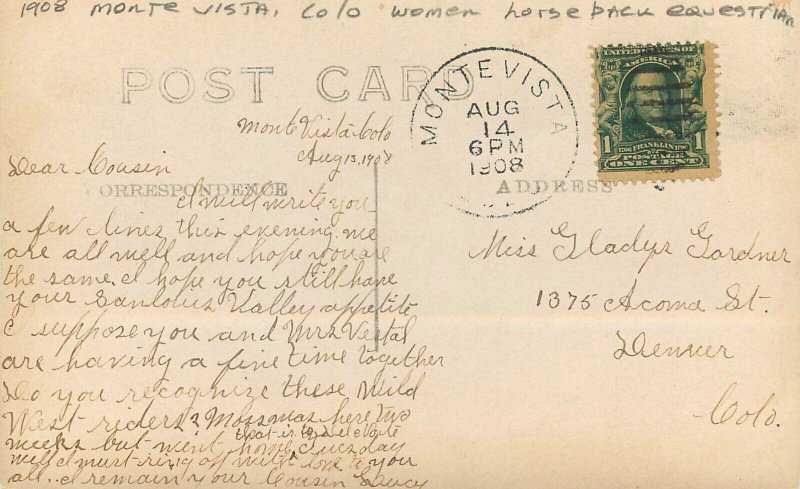 1908 MONTE VISTA, Colo women horse back equestrian
POST CARD
MONTE VISTA
AUG
14
6PM
1908
UNITED STATES OF
AMERICA
1 FRANKLIN 1
POSTAGE
ONE CENT
Monte Vista Colo
Aug 13, 1908
CORRESPONDENCE
ADDRESS
Dear Cousin
I will write you
a few lines this evening we
are all well and hope you are
the same. I hope you still have
your Sanlouis Valley appetite
I suppose you and Mrs Vestal
are having a fine time together
Do you recognize these Wild
West riders? Moss was here two
weeks but went home Tuesday
that is to
well I must ring off with love to you
all.. I remain your Cousin
Miss Gladys Gardner
1375 Acoma St.
Denver
Colo.